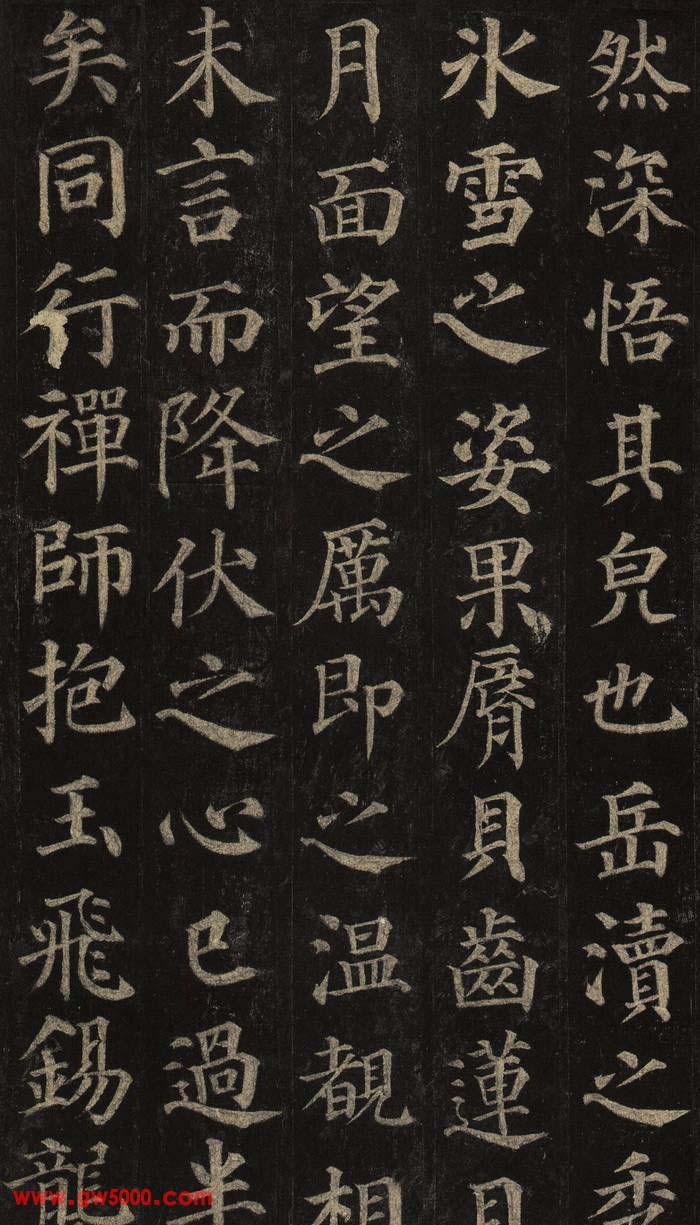 然深悟其皃也岳瀆之秀
氷雪之姿果脣貝齒蓮目
月面望之厲即之温覩相
未言而降伏之心已過半
矣同行禪師抱玉飛錫襲
www.gw5000.com